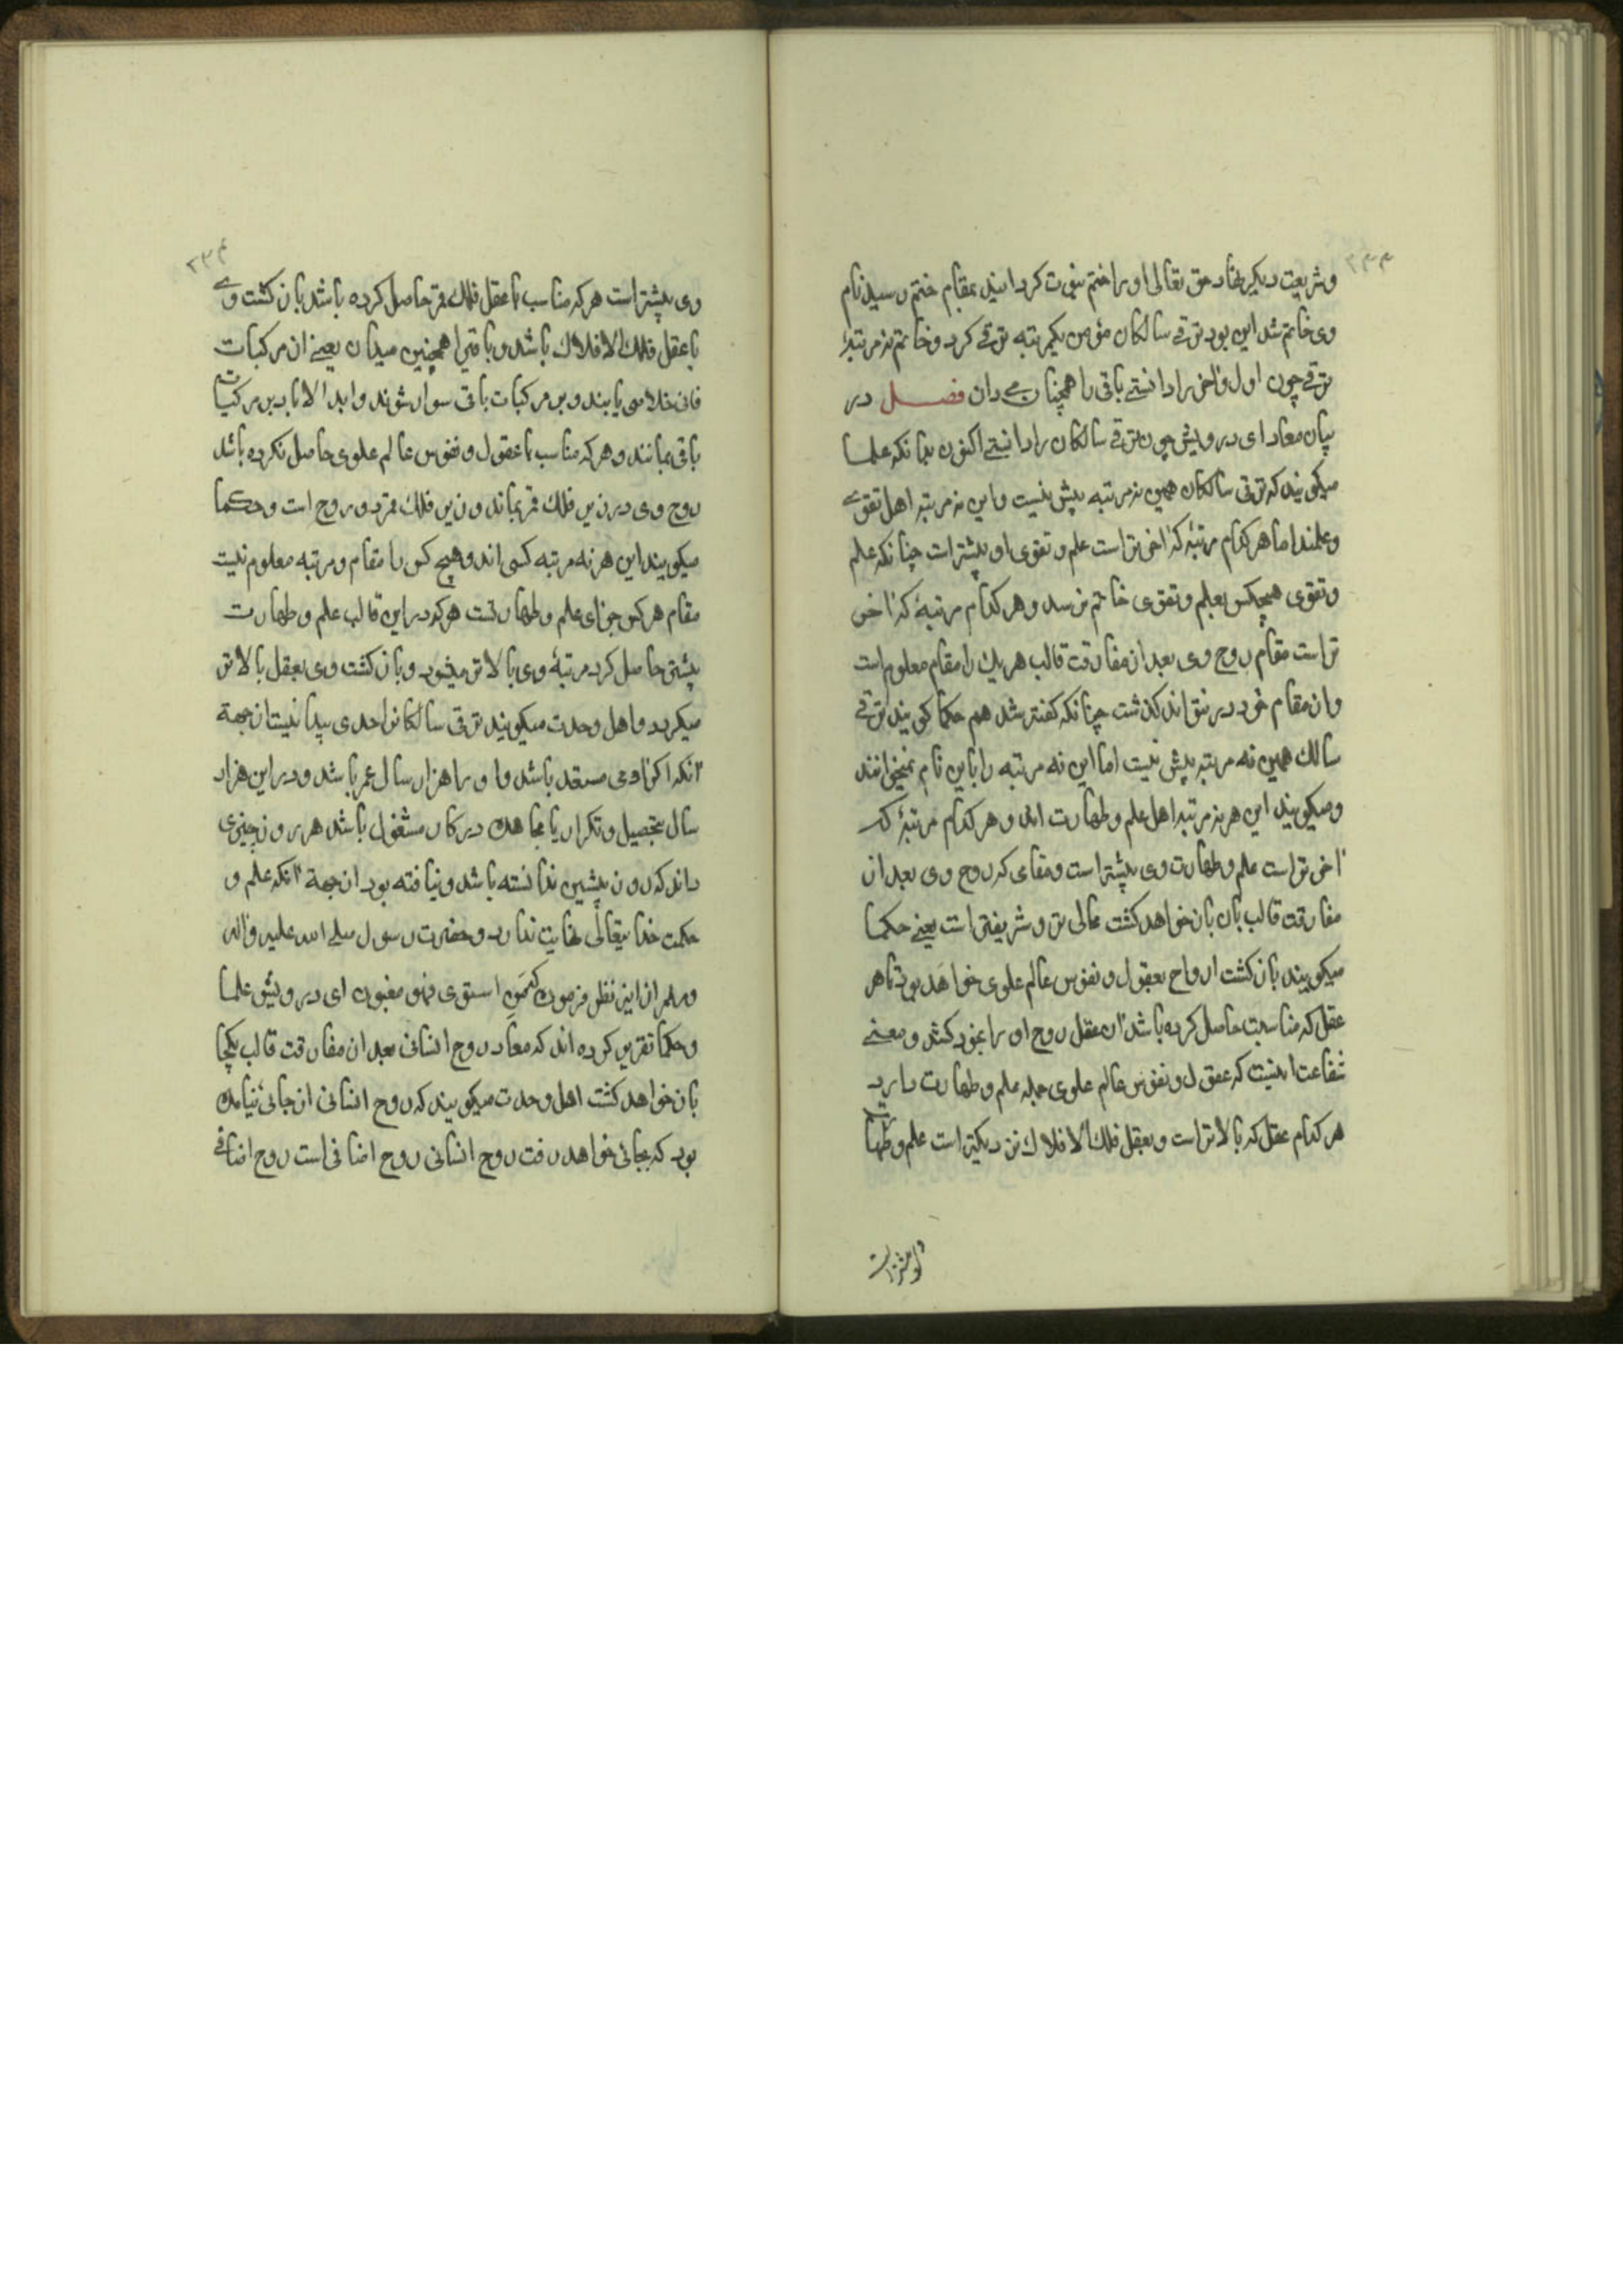 ۲۳۳
و شریعت دیگر نهاد حق تعالی او را ختم نبوت گردانید بمقام ختم رسید نام
وی خاتم شد این بود ترقی سالکان مؤمن یکمرتبه ترقی کرد و خاتم نه مرتبه
ترقی چون اول و آخر را دانستی باقی را همچنان می دان فصل در
بیان معاد ای درویش چون ترقی سالکان را دانستی اکنون بدانکه علما
میگویند که ترقی سالکان همین نه مرتبه بیش نیست و این نه مرتبه اهل تقوی
و علمند اما هر کدام مرتبه که آخرتر است علم و تقوی او بیشتر است چنانکه علم
و تقوی هیچکس بعلم و تقوی خاتم نرسد و هر کدام مرتبهٔ که آخر
تر است مقام روح وی بعد از مفارقت قالب هر یک را مقام معلوم است
و از مقام خود در نتواند گذشت چنانکه گفته شد هم حکما گویند ترقی
سالک همین نه مرتبه بیش نیست اما این نه مرتبه را باین نام نمیخوانند
و میگویند این هر نه مرتبه اهل علم و طهارت اند و هر کدام مرتبهٔ که
آخرتر است علم و طهارت وی بیشتر است و مقامی که روح وی بعد از
مفارقت قالب بان باز خواهد گشت عالی تر و شریفتر است یعنی حکما
میگویند بازگشت ارواح بعقول و نفوس عالم علوی خواهد بود تا هر
عقل که مناسبت حاصل کرده باشد آن عقل روح او را بخود کشد و معنی
شفاعت اینست که عقول و نفوس عالم علوی جمله علم و طهارت دارد
هر کدام عقل که بالاتر است و بعقل فلک الافلاک نزدیکتر است علم و طهارت
او بیشتر است
۲۳۴
وی بیشتر است هر که مناسب با عقل فلک قمر حاصل کرده باشد بازگشت وی
با عقل فلک الافلاک باشد و باقی را همچنین میدان یعنی از مرکبات
فانی خلاصی یابند و بر مرکبات باقی سوار شوند و ابد الاباد بر مرکبات
باقی بمانند و هر که مناسب با عقول و نفوس عالم علوی حاصل نکرده باشد
روح وی در زیر فلک قمر بماند و زیر فلک قمر دوزخ است و حکما
میگویند این هر نه مرتبه کسی اند و هیچ کس را مقام و مرتبه معلوم نیست
مقام هر کس جزای علم و طهارتست هر که در این قالب علم و طهارت
بیشتر حاصل کرد مرتبهٔ وی بالاتر میشود و بازگشت وی بعقل بالاتر
میگردد و اهل وحدت میگویند ترقی سالکانرا حدی پیدا نیست از جهة
آنکه اگر آدمی مستعد باشد و او را هزار سال عمر باشد و در این هزار
سال بتحصیل و تکرار یا مجاهده در کار مشغول باشد هر روز چیزی
داند که روز پیشین ندانسته باشد و نیافته بود از جهة آنکه علم و
حکمت خدایتعالی نهایت ندارد و حضرت رسول صلی الله علیه و آله
و سلم از این نظر فرمود که من استوی فهو مغبون ای درویش علما
و حکما تقریر کرده اند که معاد روح انسانی بعد از مفارقت قالب بکجا
باز خواهد گشت اهل وحدت میگویند که روح انسانی از جائی نیامده
بود که بجائی خواهد رفت روح انسانی روح اضافی است روح اضافی